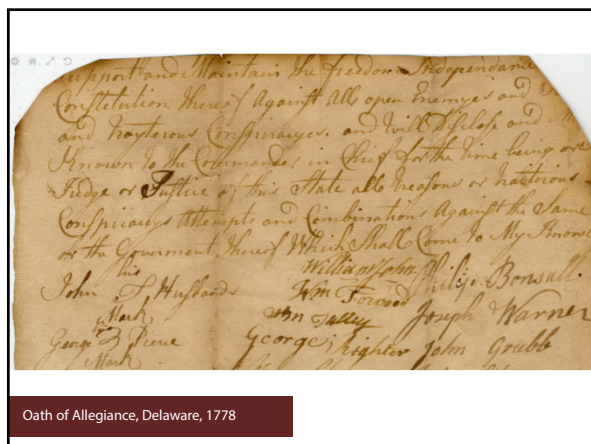 Support and Maintain the freedom Independance
Constetution thereof Against All open Enemyes and
and trayterous Conspiracyes. and Will Disclose and
Known to the Commander in Chief for the time being or
Judge or Justice of this State all treasons or traiterous
Conspiracys Attempts and Combinations Against the Same
or the Goverment thereof Which Shall Come to My Know
his
John Husbands
Mark
George
Mark
William John
Wm Forwood
Wm Talley
George Righter
Philip Bonsall
Joseph Warner
John Grubb
Oath of Allegiance, Delaware, 1778